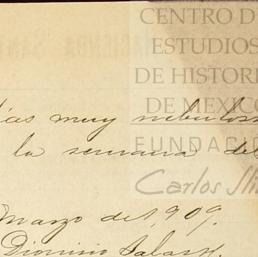 CENTRO D
ESTUDIOS
DE HISTORI
DE MEXICO
FUNDACIÓ
Carlos Sli
días muy nebulos
la semana del
Marzo de 1,909.
Dionisio